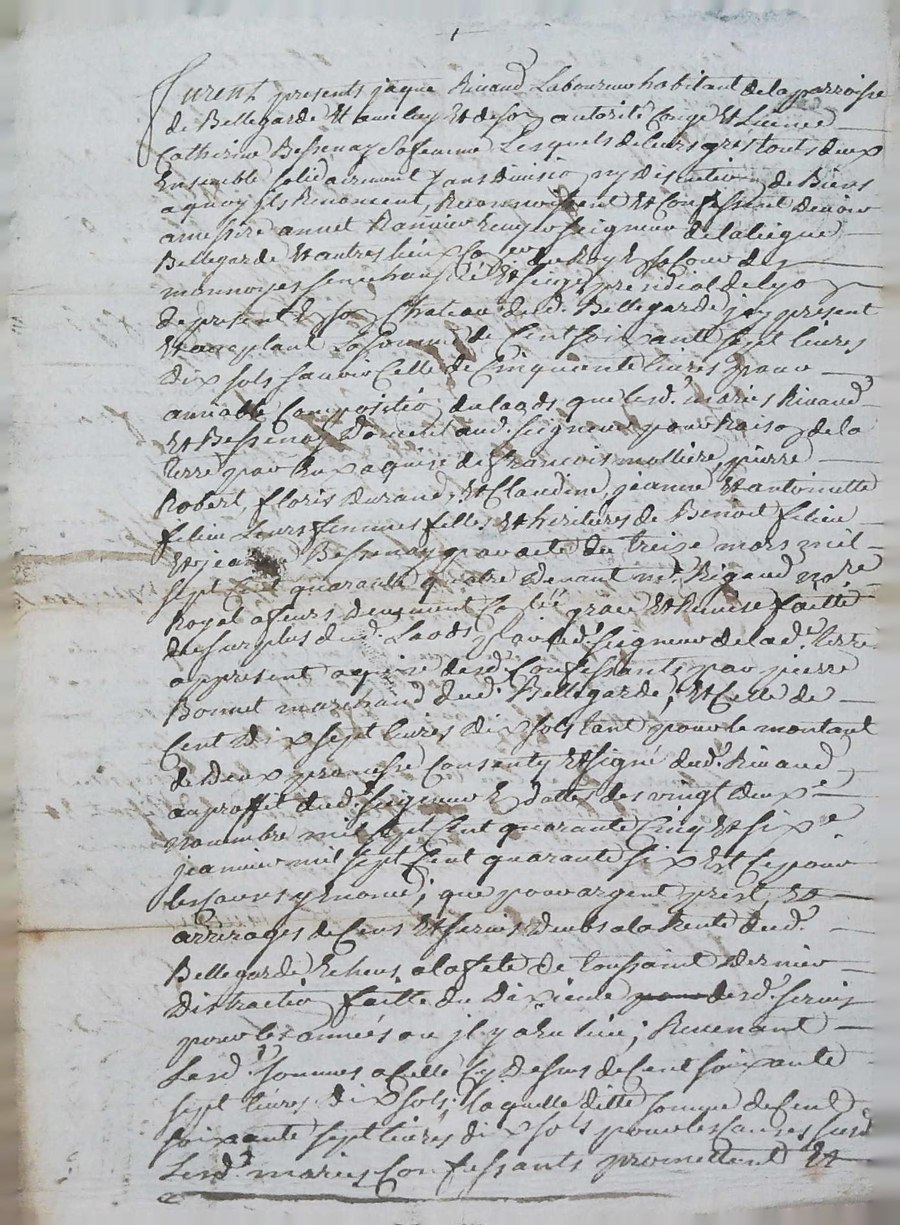 Furent presents jaque Rivaud Laboureur habitant de la parroisse
de Bellegarde Et avec luy Et de son autorité Congé Et Licence
Catherine Bessenay sa femme Lesquels de leurs grés touts deux
Ensemble solidairement sans Division ny Distraction de Biens
a quoy ils Renoncent, Reconnoissent Et Confessent Devoir
a messire annet Rannier Ecuyer seigneur de la liegue
Bellegarde Et autres lieux Coner du Roy En sa Cour des
monnoyes senechaussée Et siege presidial de lyon
de present En son Chateau dud. Bellegarde jcy present
Et acceptant La somme de Cent soixante sept livres
Dix sols sauvoir Celle de Cinquante livres pour
amiable Composition du laods que lesd. mariés Rivaud
Et Bessenay Doivent aud. seigneur pour Raison de la
terre par Eux aquise de francois molliere, pierre
Robert, floris durand, Et Claudine, jeanne Et antoinette
filieu Leurs femmes filles Et heritieres de Benoit filieu
Et jeanne Bessenay par acte du treize mars mil
sept Cent quarante quatre Devant me. Rigaud nore
Royal a feurs Deuement Conllé grace Et Remise faitte
du surplus dud. Laods par led. seigneur de lad. terre
a present aquise desd. Confessants par pierre
Bonnet marchand dud. Bellegarde; Et Celle de
Cent Dix sept livres Dix sols tant pour le montant
de Deux promesse Consenty Et signé dud. Rivaud
au proffit dud. seigneur En dattes des vingt deuxe
novembre mil sept Cent quarante Cinq Et sixe
jeanvier mil sept Cent quarante six Et Ce pour
les Causes y enoncé; que pour argent presté, Et
arrirages de Cens Et servis Deubs a la Rente dud.
Bellegarde Echeus a la fete de toussaint Dernier
Distraction faitte du Dixieme desd. servis
pour les années ou jl y a Eu lieu; Revenant
Lesd. sommes a Celle Cy Dessus de Cent soixante
sept livres dix sols; laquelle ditte somme de Cent
soixante sept livres dix sols pour les Causes susd.
Lesd. mariés Confessants promettent Et